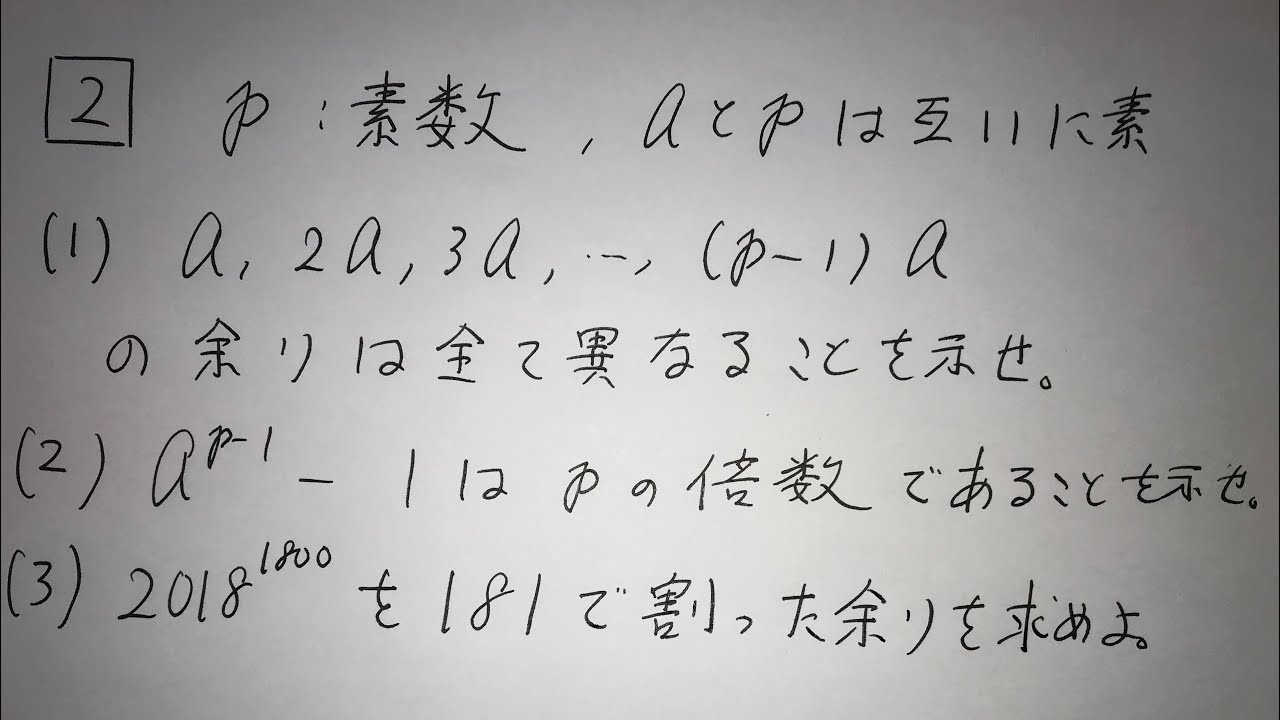 2 p:素数, aとpは互いに素
(1) a, 2a, 3a, …, (p-1)a
の余りは全て異なることを示せ。
(2) a^{p-1} - 1はpの倍数であることを示せ。
(3) 2018^{1800}を181で割った余りを求めよ。